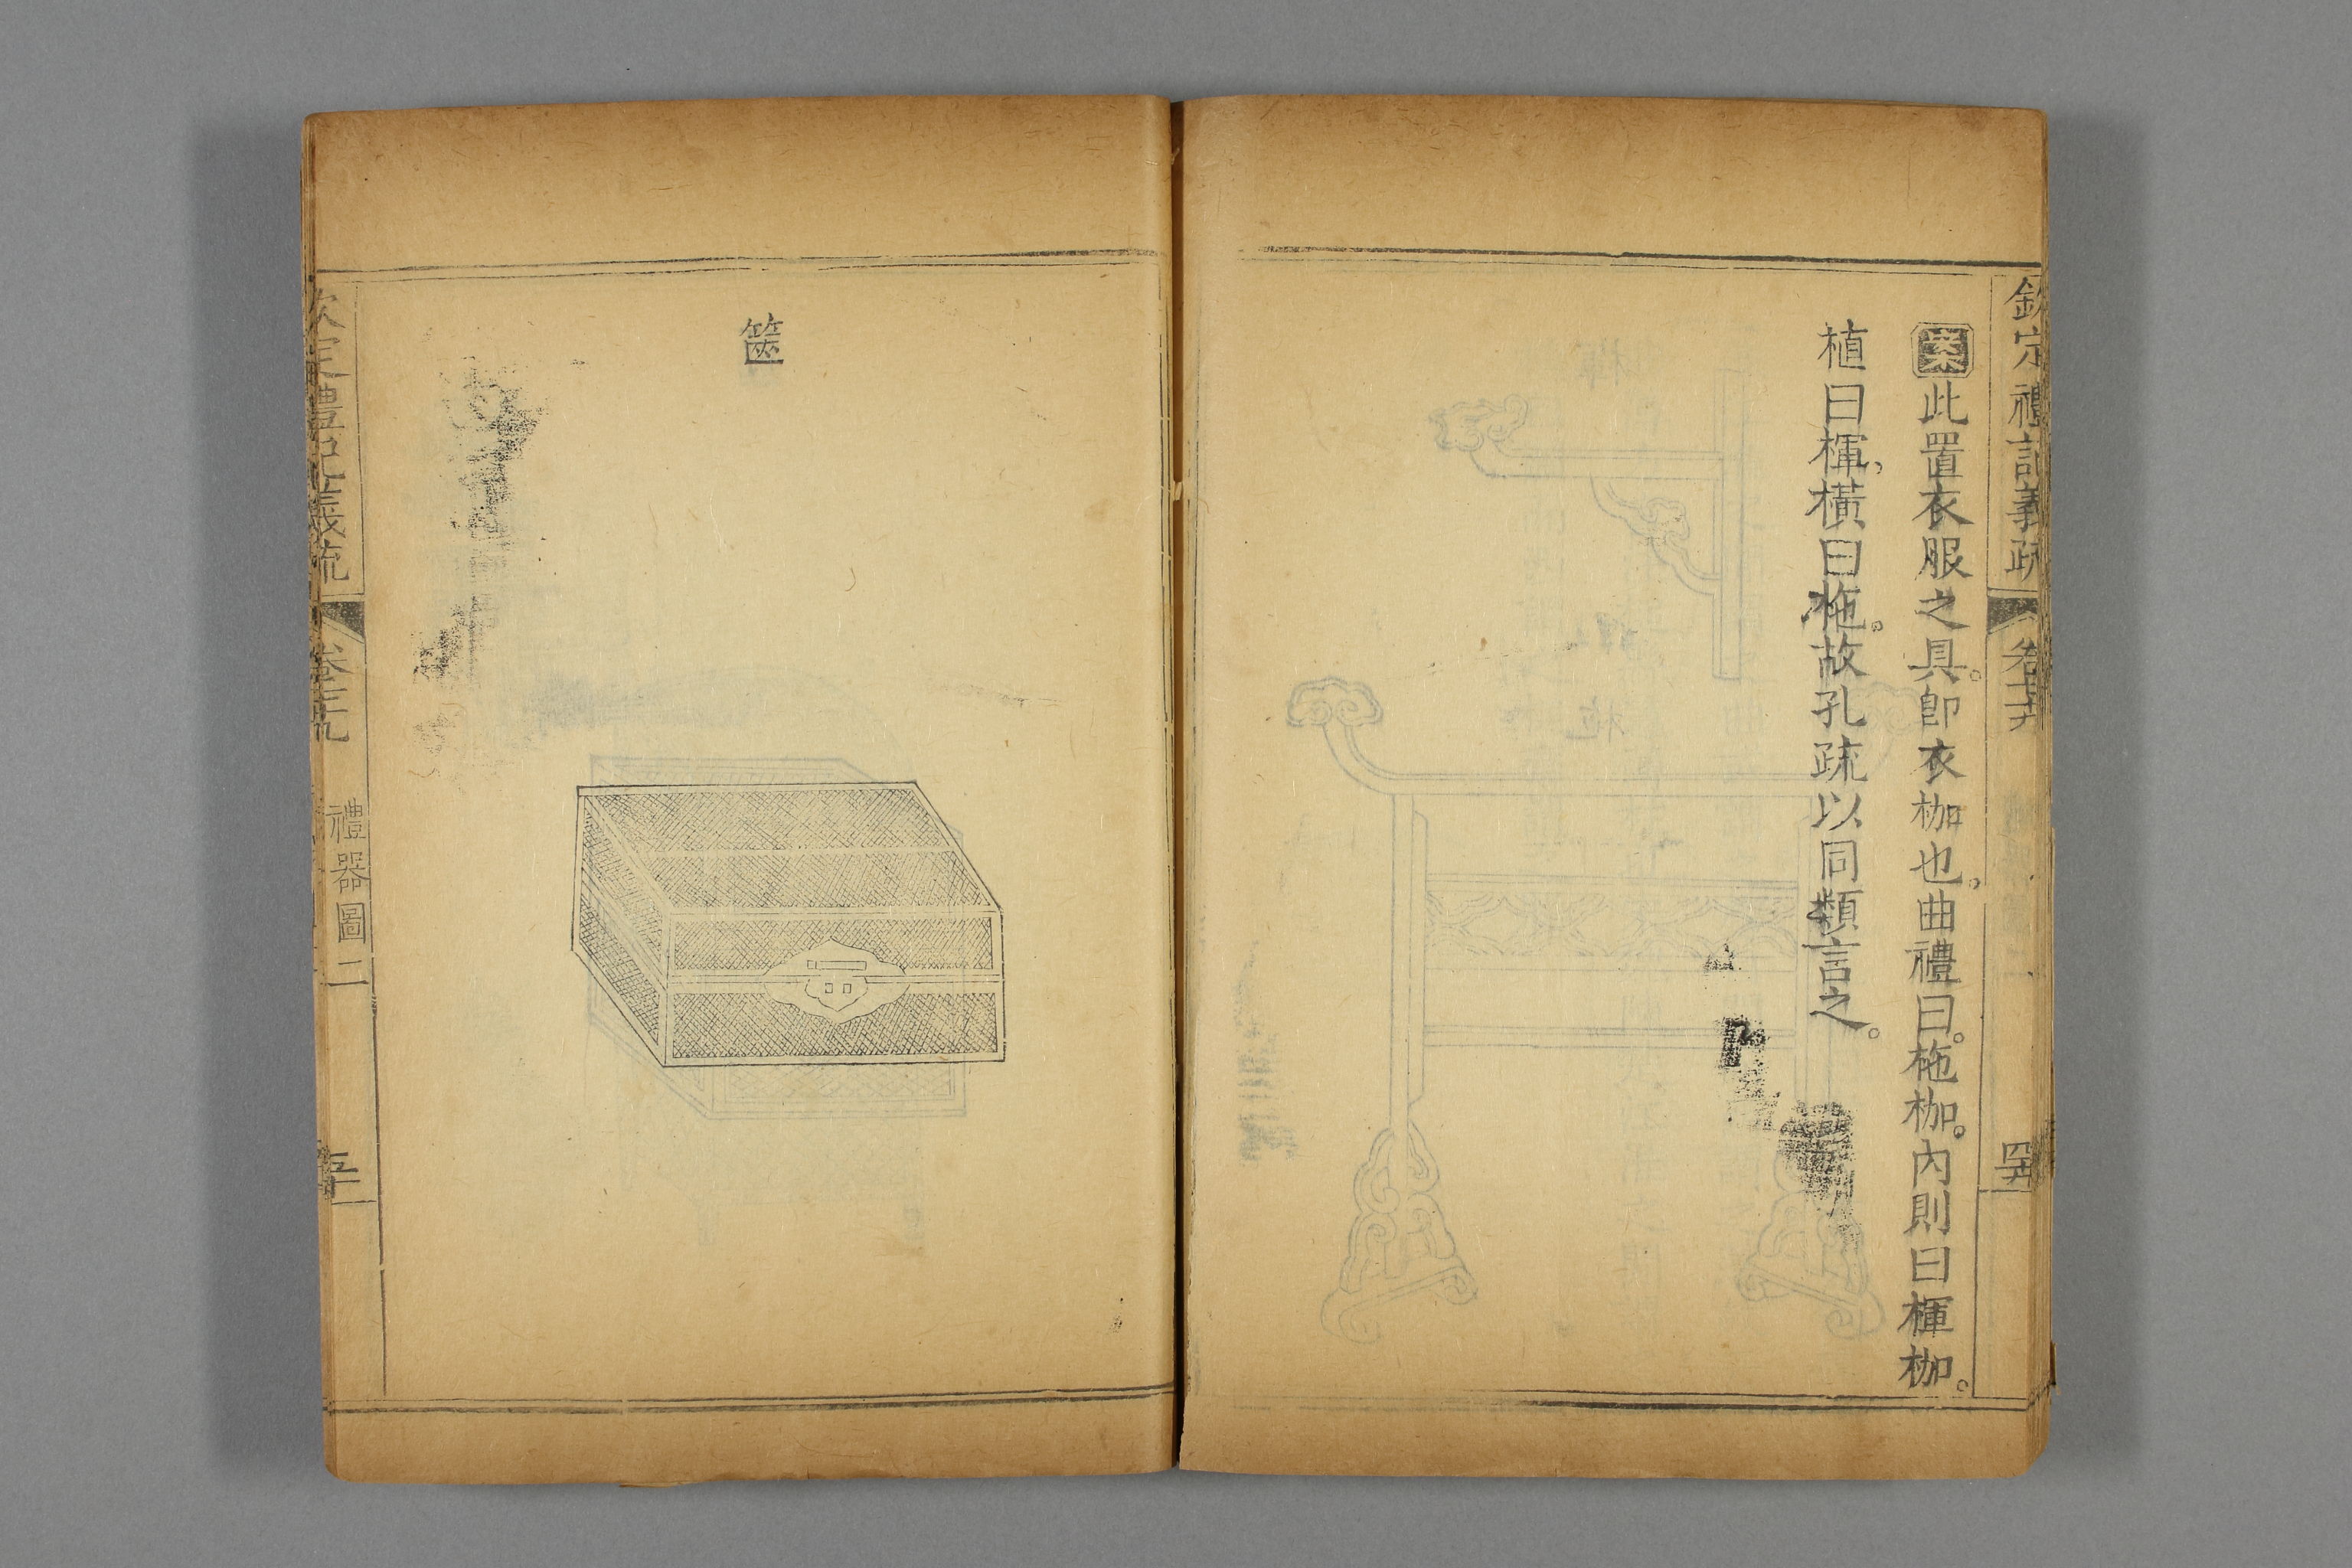 欽定禮記義疏 卷七十九 四十九
案此置衣服之具。卽衣枷也。曲禮曰。椸枷。內則曰楎枷。
植曰楎，橫曰椸。故孔疏以同類言之。
篋
欽定禮記義疏 卷七十九 禮器圖二 五十